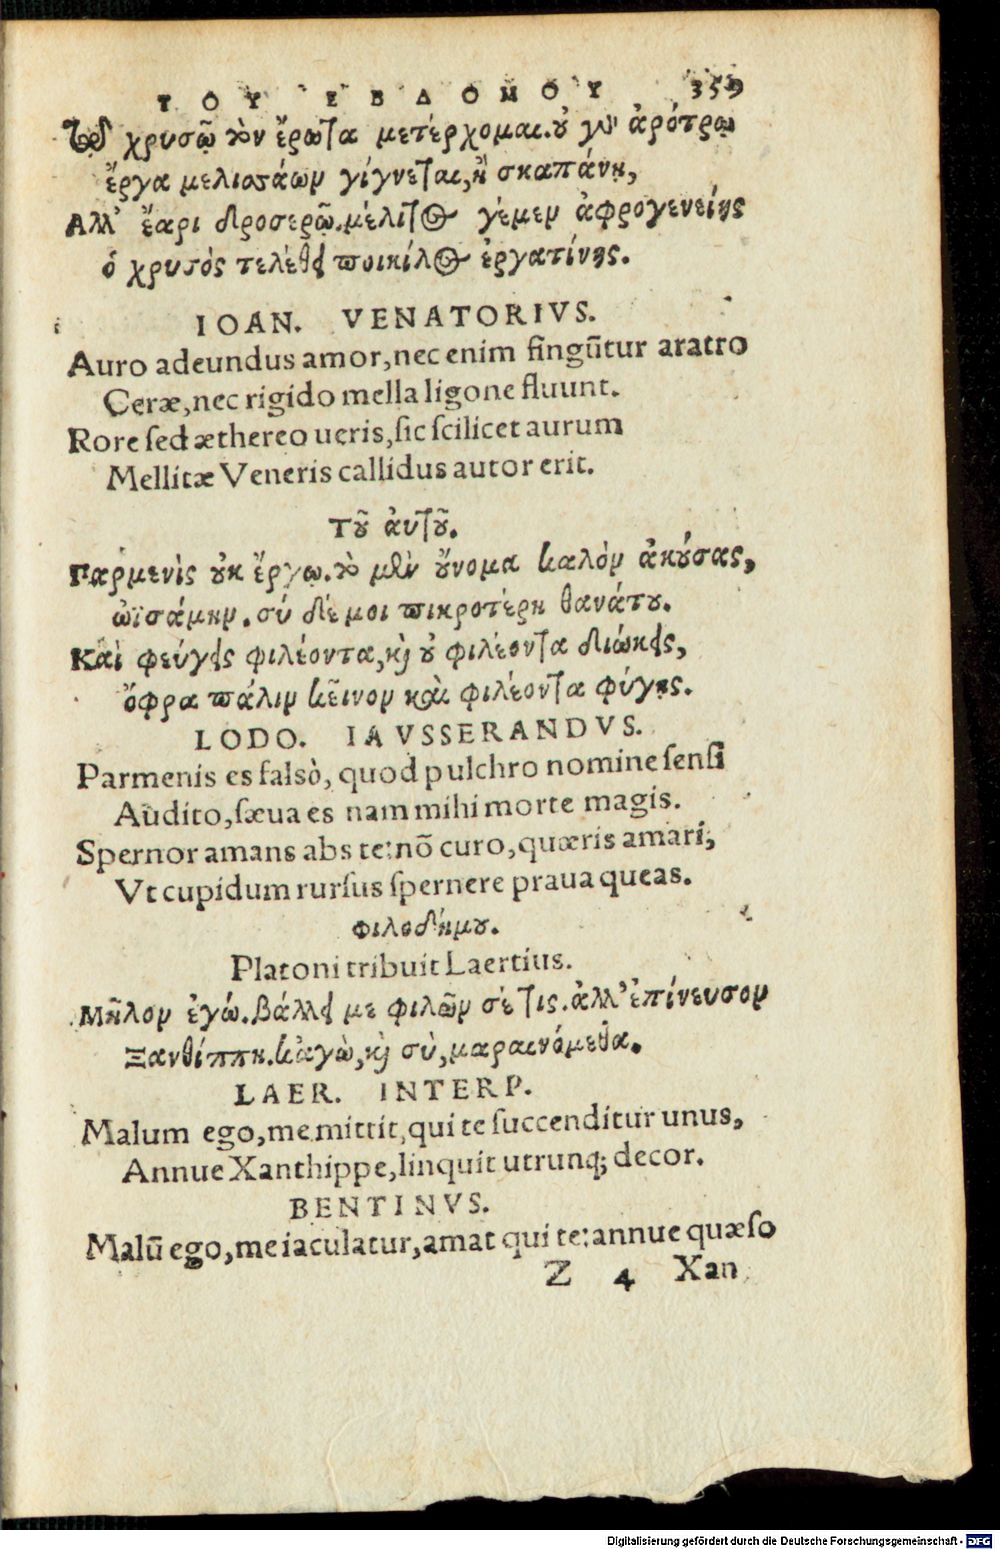 ΤΟΥ ΕΒΔΟΜΟΥ 359
Τῷ χρυσῷ τὸν ἔρωτα μετέρχομαι. οὐ γὰρ ἀρότρῳ
ἔργα μελισσάων γίγνεται, ἢ σκαπάνῃ,
Αλλ' ἔαρι δροσερῷ. μέλιτος γέμεν ἀφρογενείης
ὁ χρυσὸς τελέθει ποικίλος ἐργατίνης.
IOAN. VENATORIVS.
Auro adeundus amor, nec enim fingūtur aratro
Ceræ, nec rigido mella ligone fluunt.
Rore sed æthereo ueris, sic scilicet aurum
Mellitæ Veneris callidus autor erit.
Τοῦ ἀυτοῦ.
Παρμενὶς οὐκ ἔργῳ. τὸ μὲν οὔνομα καλὸν ἀκούσας,
ὠϊσάμην. σύ δέ μοι πικροτέρη θανάτου.
Καὶ φεύγεις φιλέοντα, καὶ οὐ φιλέοντα διώκεις,
ὄφρα πάλιν κεῖνον καὶ φιλέοντα φύγῃς.
LODO. IAVSSERANDVS.
Parmenis es falsò, quod pulchro nomine sensi
Audito, sæua es nam mihi morte magis.
Spernor amans abs te: nō curo, quæris amari;
Vt cupidum rursus spernere praua queas.
Φιλοδήμου.
Platoni tribuit Laertius.
Μῆλον ἐγώ. βάλλει με φιλῶν σέ τις. ἀλλ' ἐπίνευσον
Ξανθίππη. κἀγὼ, καὶ σὺ, μαραινόμεθα.
LAER. INTERP.
Malum ego, me mittit, qui te succenditur unus,
Annue Xanthippe, linquit utrunq; decor.
BENTINVS.
Malū ego, me iaculatur, amat qui te: annue quæso
Z 4 Xan
Digitalisierung gefördert durch die Deutsche Forschungsgemeinschaft - DFG